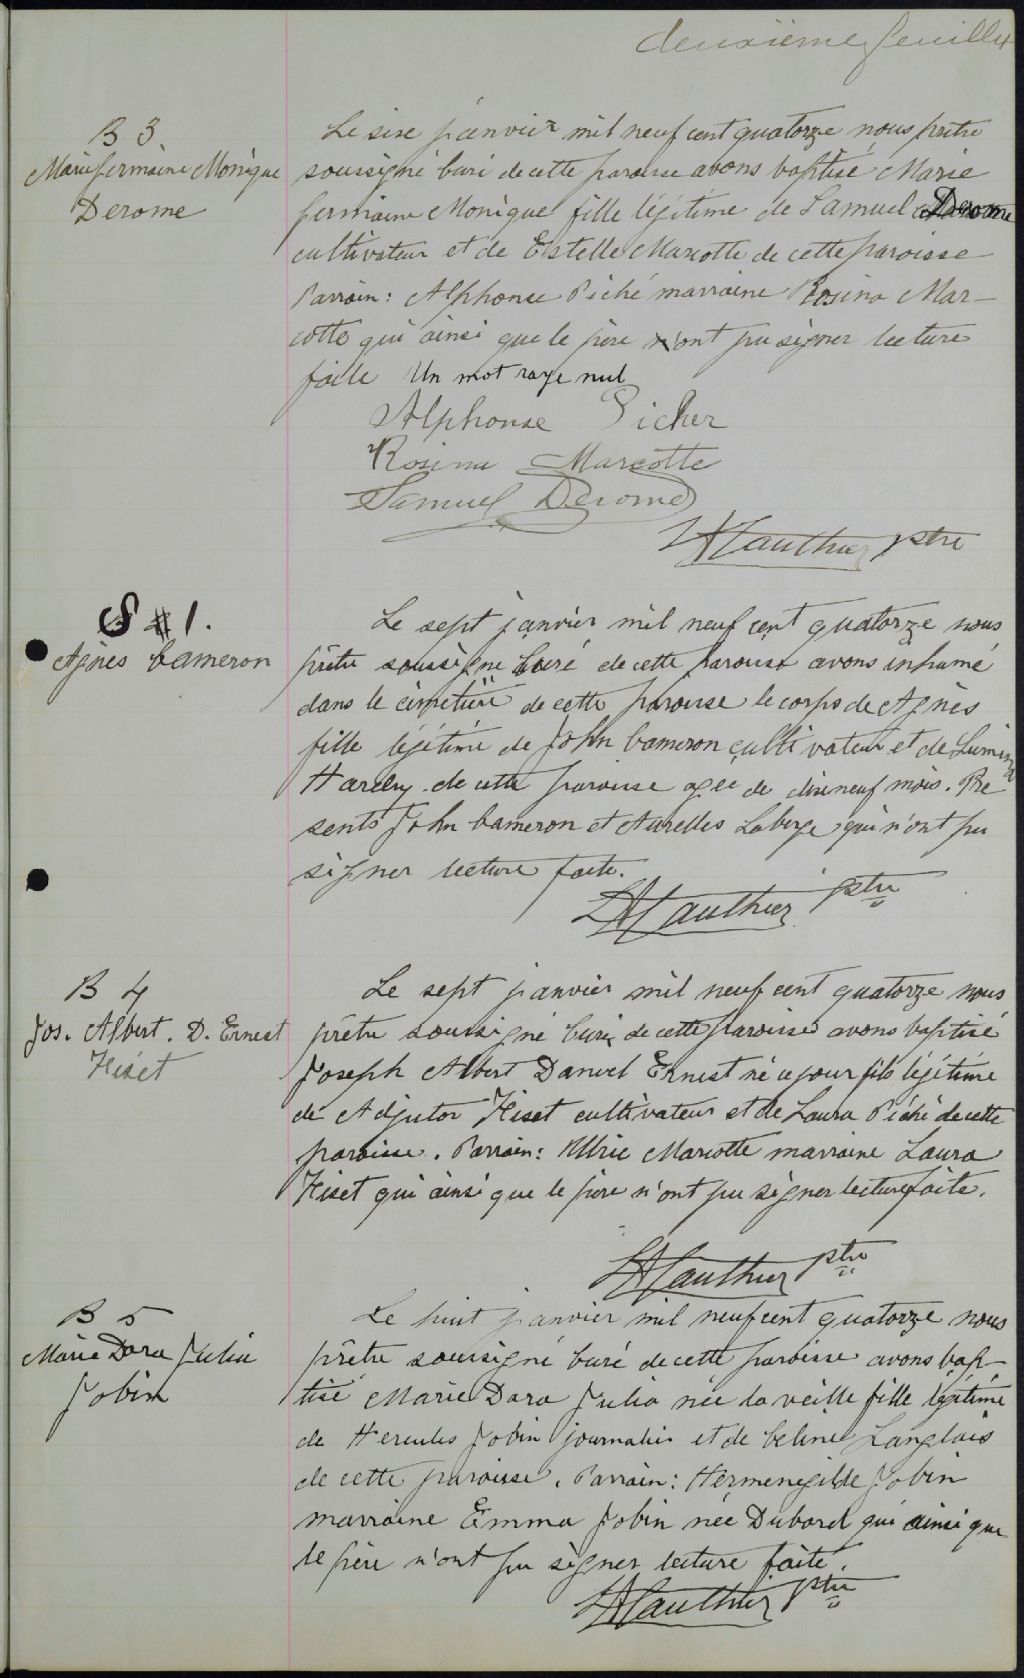 deuxième feuillet
B 3
Marie Germaine Monique
Derome
Le six janvier mil neuf cent quatorze nous prêtre
soussigné Curé de cette paroisse avons baptisé Marie
Germaine Monique fille légitime de Samuel Derome
cultivateur et de Estelle Marcotte de cette paroisse
Parrain: Alphonse Piché marraine Rosina Mar-
cotte qui ainsi que le père n'ont pu signer lecture
faite Un mot rayé nul
Alphonse Picher
Rosina Marcotte
Samuel Derome
Gauthier ptre
S #1.
Agnès Cameron
Le sept janvier mil neuf cent quatorze nous
prêtre soussigné Curé de cette paroisse avons inhumé
dans le cimetière de cette paroisse le corps de Agnès
fille légitime de John Cameron cultivateur et de
Hardy de cette paroisse agée de dixneuf mois. Pré
sents John Cameron et Aurelles Laberge qui n'ont pu
signer lecture faite.
Gauthier ptre
B 4
Jos. Albert. D. Ernest
Hiset
Le sept janvier mil neuf cent quatorze nous
prêtre soussigné Curé de cette paroisse avons baptisé
Joseph Albert Daniel Ernest né ce jour fils légitime
de Adjutor Hiset cultivateur et de Laura Piché de cette
paroisse. Parrain: Ulric Marcotte marraine Laura
Hiset qui ainsi que le père n'ont pu signer lecture faite.
Gauthier ptre
B 5
Marie Dora Julia
Jobin
Le huit janvier mil neuf cent quatorze nous
prêtre soussigné Curé de cette paroisse avons bap-
tisé Marie Dora Julia née la veille fille légitime
de Hercules Jobin journalier et de Celine Langlois
de cette paroisse. Parrain: Hermenegilde Jobin
marraine Emma Jobin née Dubord qui ainsi que
le père n'ont pu signer lecture faite.
Gauthier ptre